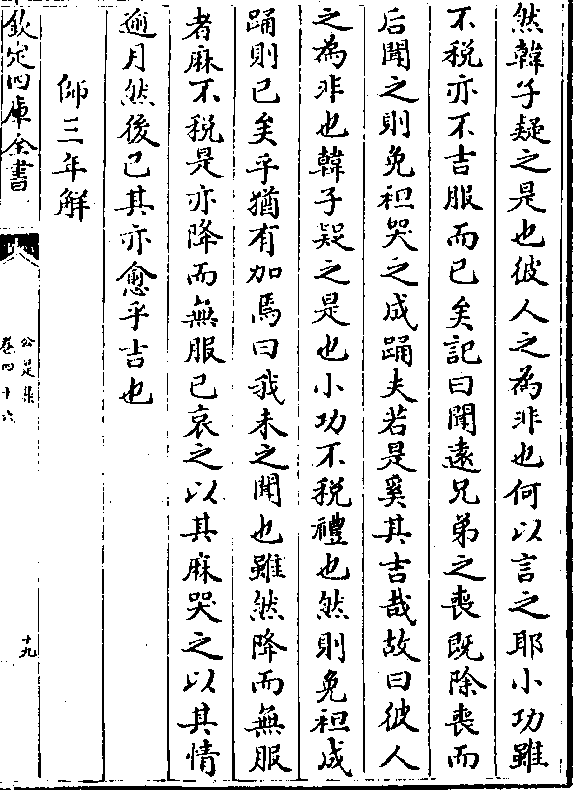 然韓子疑之是也彼人之為非也何以言之耶小功雖
不税亦不吉服而已矣記曰聞遠兄弟之喪既除喪而
后聞之則免袒哭之成踊夫若是奚其吉哉故曰彼人
之為非也韓子疑之是也小功不税禮也然則免袒成
踊則已矣乎猶有加焉曰我未之聞也雖然降而無服
者麻不税是亦降而無服已哀之以其麻哭之以其情
逾月然後已其亦愈乎吉也
師三年解
欽定四庫全書
公是集
卷四十六
十九